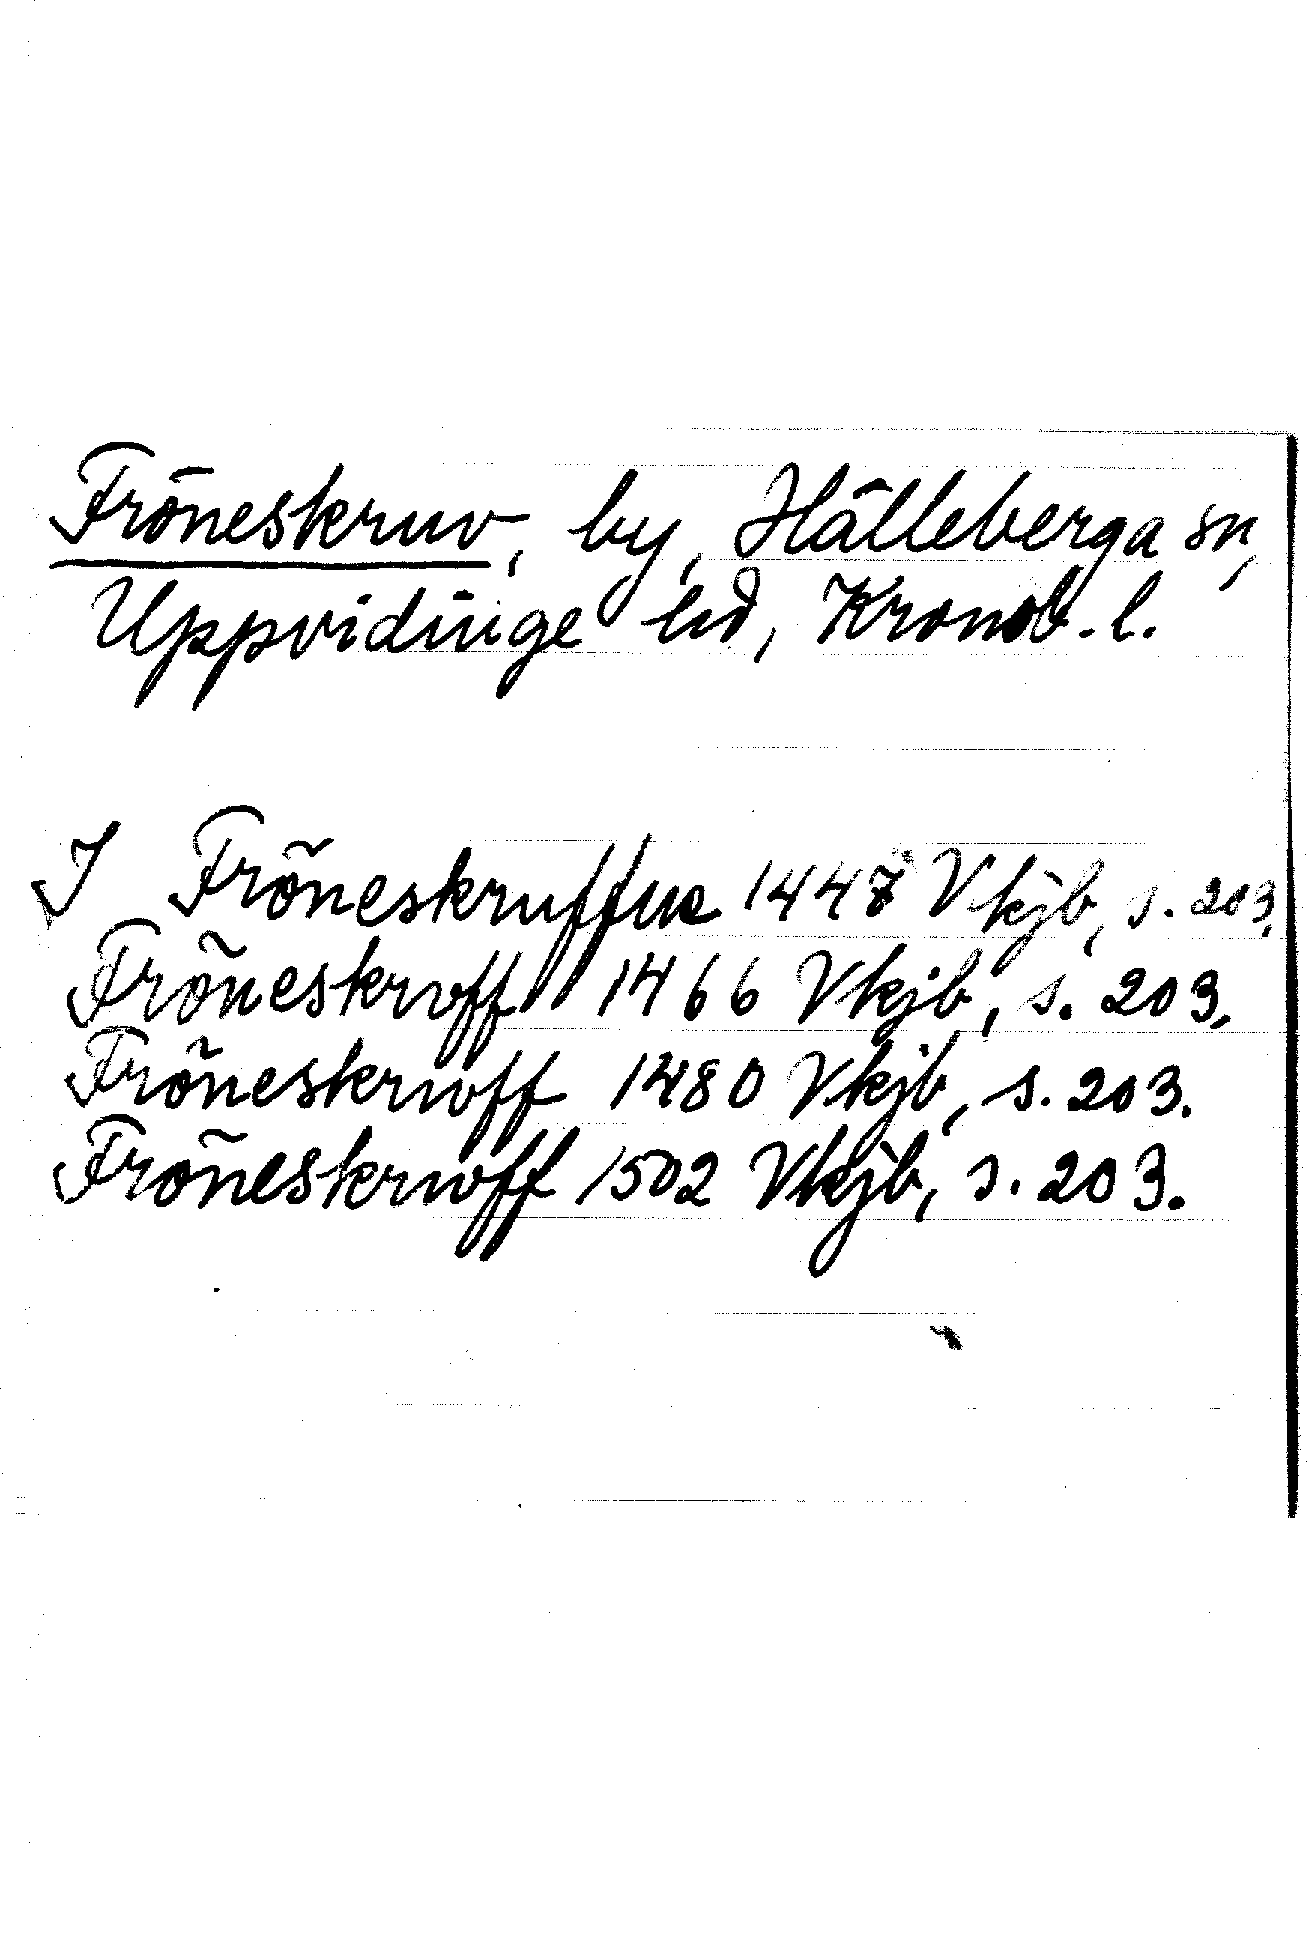 Fröneskruv, by, Hälleberga sn,
Uppvidinge hd, Kronob. l.
I Fröneskruffue 1447 Vkjb, s. 203.
Fröneskroff 1466 Vkjb, s. 203.
Fröneskrwff 1480 Vkjb, s. 203.
Fröneskrwff 1502 Vkjb, s. 203.